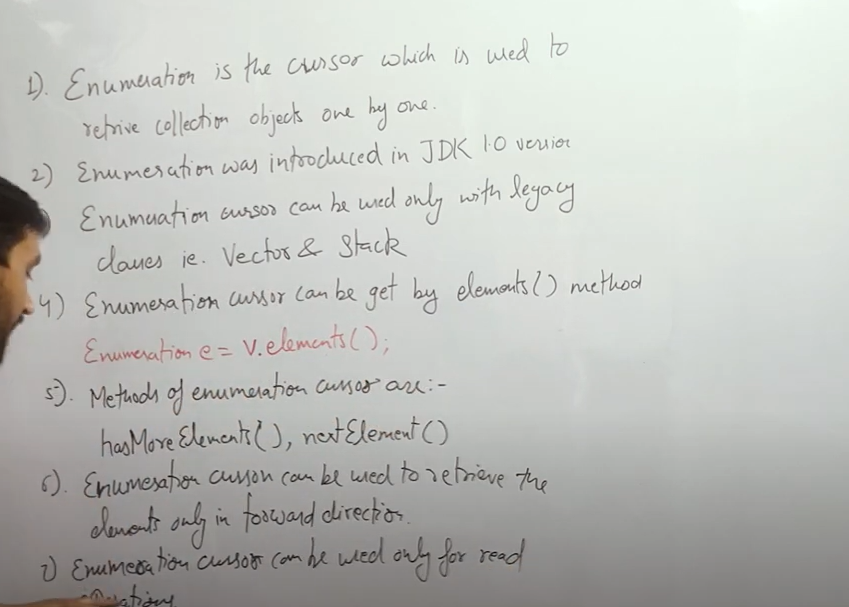 1). Enumeration is the cursor which is used to
retrive collection objects one by one.
2) Enumeration was introduced in JDK 1.0 version
Enumeration cursor can be used only with legacy
classes ie. Vector & Stack
4) Enumeration cursor can be get by elements() method
Enumeration e = v.elements();
5). Methods of enumeration cursor are:-
hasMoreElements(), nextElement()
6). Enumeration cursor can be used to retrieve the
elements only in forward direction.
7) Enumeration cursor can be used only for read